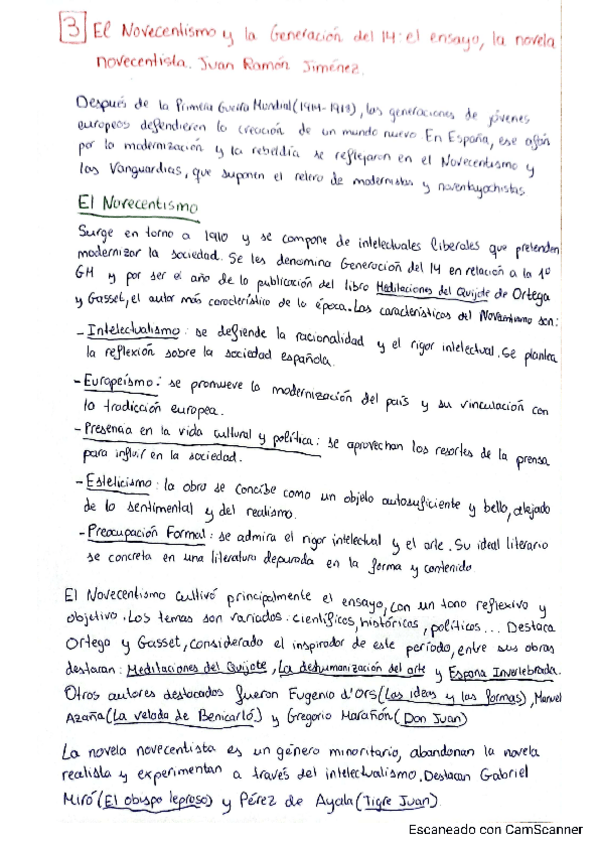 3 El Novecentismo y la Generación del 14: el ensayo, la novela
novecentista. Juan Ramón Jiménez.
Después de la Primera Guerra Mundial (1914-1918), las generaciones de jóvenes
europeos defendieron la creación de un mundo nuevo En España, ese afán
por la modernización y la rebeldía se reflejaron en el Novecentismo y
las Vanguardias, que suponen el relevo de modernistas y noventayochistas
El Novecentismo
Surge en torno a 1910 y se compone de intelectuales liberales que pretenden
modernizar la sociedad. Se les denomina Generación del 14 en relación a la 1º
GM y por ser el año de la publicación del libro Meditaciones del Quijote de Ortega
y Gasset, el autor más característico de la época. Las características del Novecentismo son:
- Intelectualismo: se defiende la racionalidad y el rigor intelectual. Se plantea
la reflexión sobre la sociedad española.
- Europeísmo: se promueve la modernización del país y su vinculación con
la tradicción europea.
- Presencia en la vida cultural y política: se aprovechan los resortes de la prensa
para influir en la sociedad.
- Esteticismo: la obra se concibe como un objeto autosuficiente y bello, alejado
de lo sentimental y del realismo.
- Preocupación Formal: se admira el rigor intelectual y el arte. Su ideal literario
se concreta en una literatura depurada en la forma y contenido
El Novecentismo cultivó principalmente el ensayo, con un tono reflexivo y
objetivo. Los temas son variados: científicos, históricos, políticos... Destaca
Ortega y Gasset, considerado el inspirador de este período, entre sus obras
destacan: Meditaciones del Quijote, La deshumanización del arte y España Invertebrada.
Otros autores destacados fueron Eugenio d'Ors (Las ideas y las formas), Manuel
Azaña (La velada de Benicarló) y Gregorio Marañón (Don Juan)
La novela novecentista es un género minoritario, abandonan la novela
realista y experimentan a través del intelectualismo. Destacan Gabriel
Miró (El obispo leproso) y Pérez de Ayala (Tigre Juan)
Escaneado con CamScanner